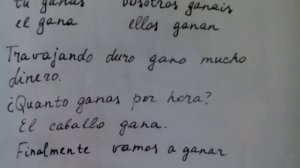 tú ganas vosotros ganais
el gana ellos ganan
Travajando duro gano mucho
dinero.
¿Quanto ganas por hora?
El caballo gana.
Finalmente vamos a ganar